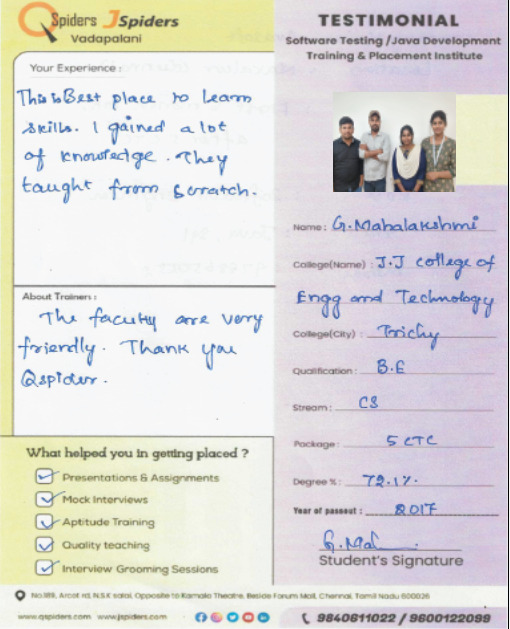 Qspiders JSpiders
Vadapalani
TESTIMONIAL
Software Testing /Java Development
Training & Placement Institute
Your Experience :
This is Best place to learn
skills. I gained a lot
of knowledge. They
taught from scratch.
About Trainers :
The faculty are very
friendly. Thank you
Qspider.
What helped you in getting placed ?
Presentations & Assignments
Mock Interviews
Aptitude Training
Quality teaching
Interview Grooming Sessions
Name : G. Mahalakshmi
College(Name) : J.J college of
Engg and Technology
College(City) : Trichy
Qualification : B.E
Stream : CS
Package : 5 CTC
Degree % : 72.1%.
Year of passout : 2017
G. Mal
Student's Signature
No.189, Arcot rd, N.S.K salai, Opposite to Kamala Theatre, Beside Forum Mall, Chennai, Tamil Nadu 600026
www.qspiders.com www.jspiders.com
9840611022 / 9600122099